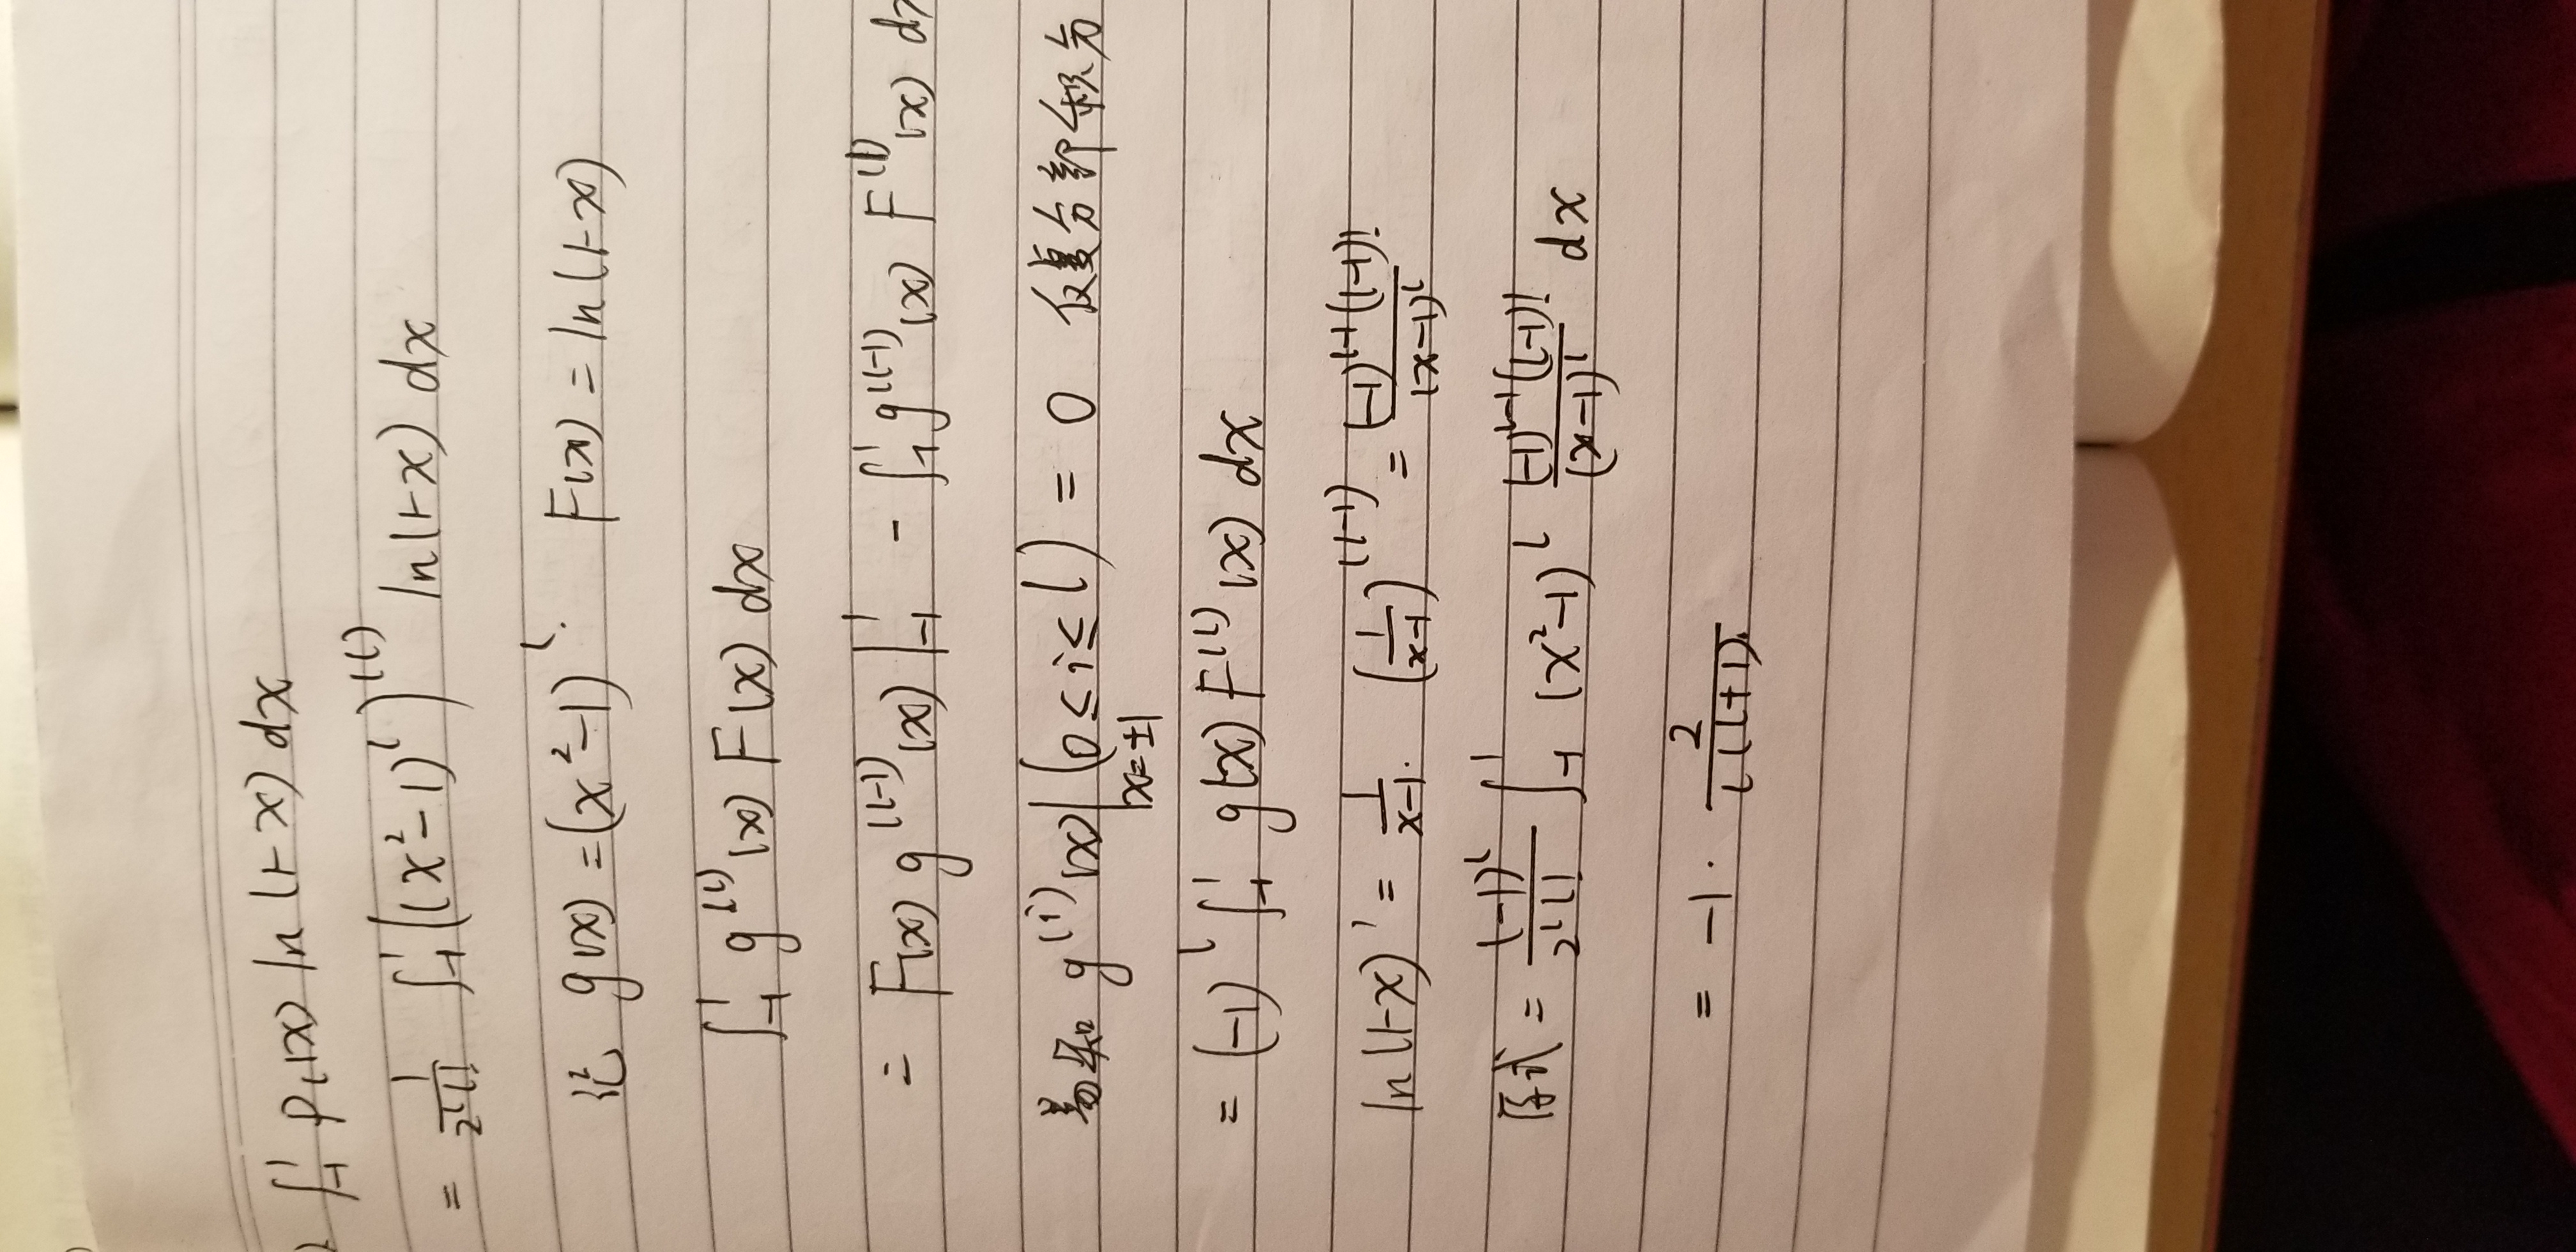 ∫₋₁¹ Pₗ(x) ln(1-x) dx
= 1/(2ˡ l!) ∫₋₁¹ ((x²-1)ˡ)⁽ˡ⁾ ln(1-x) dx
记 g(x) = (x²-1)ˡ. F(x) = ln(1-x)
∫₋₁¹ g⁽ˡ⁾(x) F(x) dx
= F(x) g⁽ˡ⁻¹⁾(x) |₋₁¹ - ∫₋₁¹ g⁽ˡ⁻¹⁾(x) F⁽¹⁾(x) dx
易知 g⁽ⁱ⁾(x)|ₓ₌±₁ (0≤i≤l) = 0 反复分部积分
= (-1)ˡ ∫₋₁¹ g(x) F⁽ˡ⁾(x) dx
ln(1-x)' = 1/(x-1). (1/(x-1))⁽ˡ⁻¹⁾ = (-1)ˡ⁻¹(l-1)!/(x-1)ˡ
原式 = (-1)ˡ/(2ˡ l!) ∫₋₁¹ (x²-1)ˡ (-1)ˡ⁻¹(l-1)!/(x-1)ˡ dx
= -1 · 2/(l(l+1)).